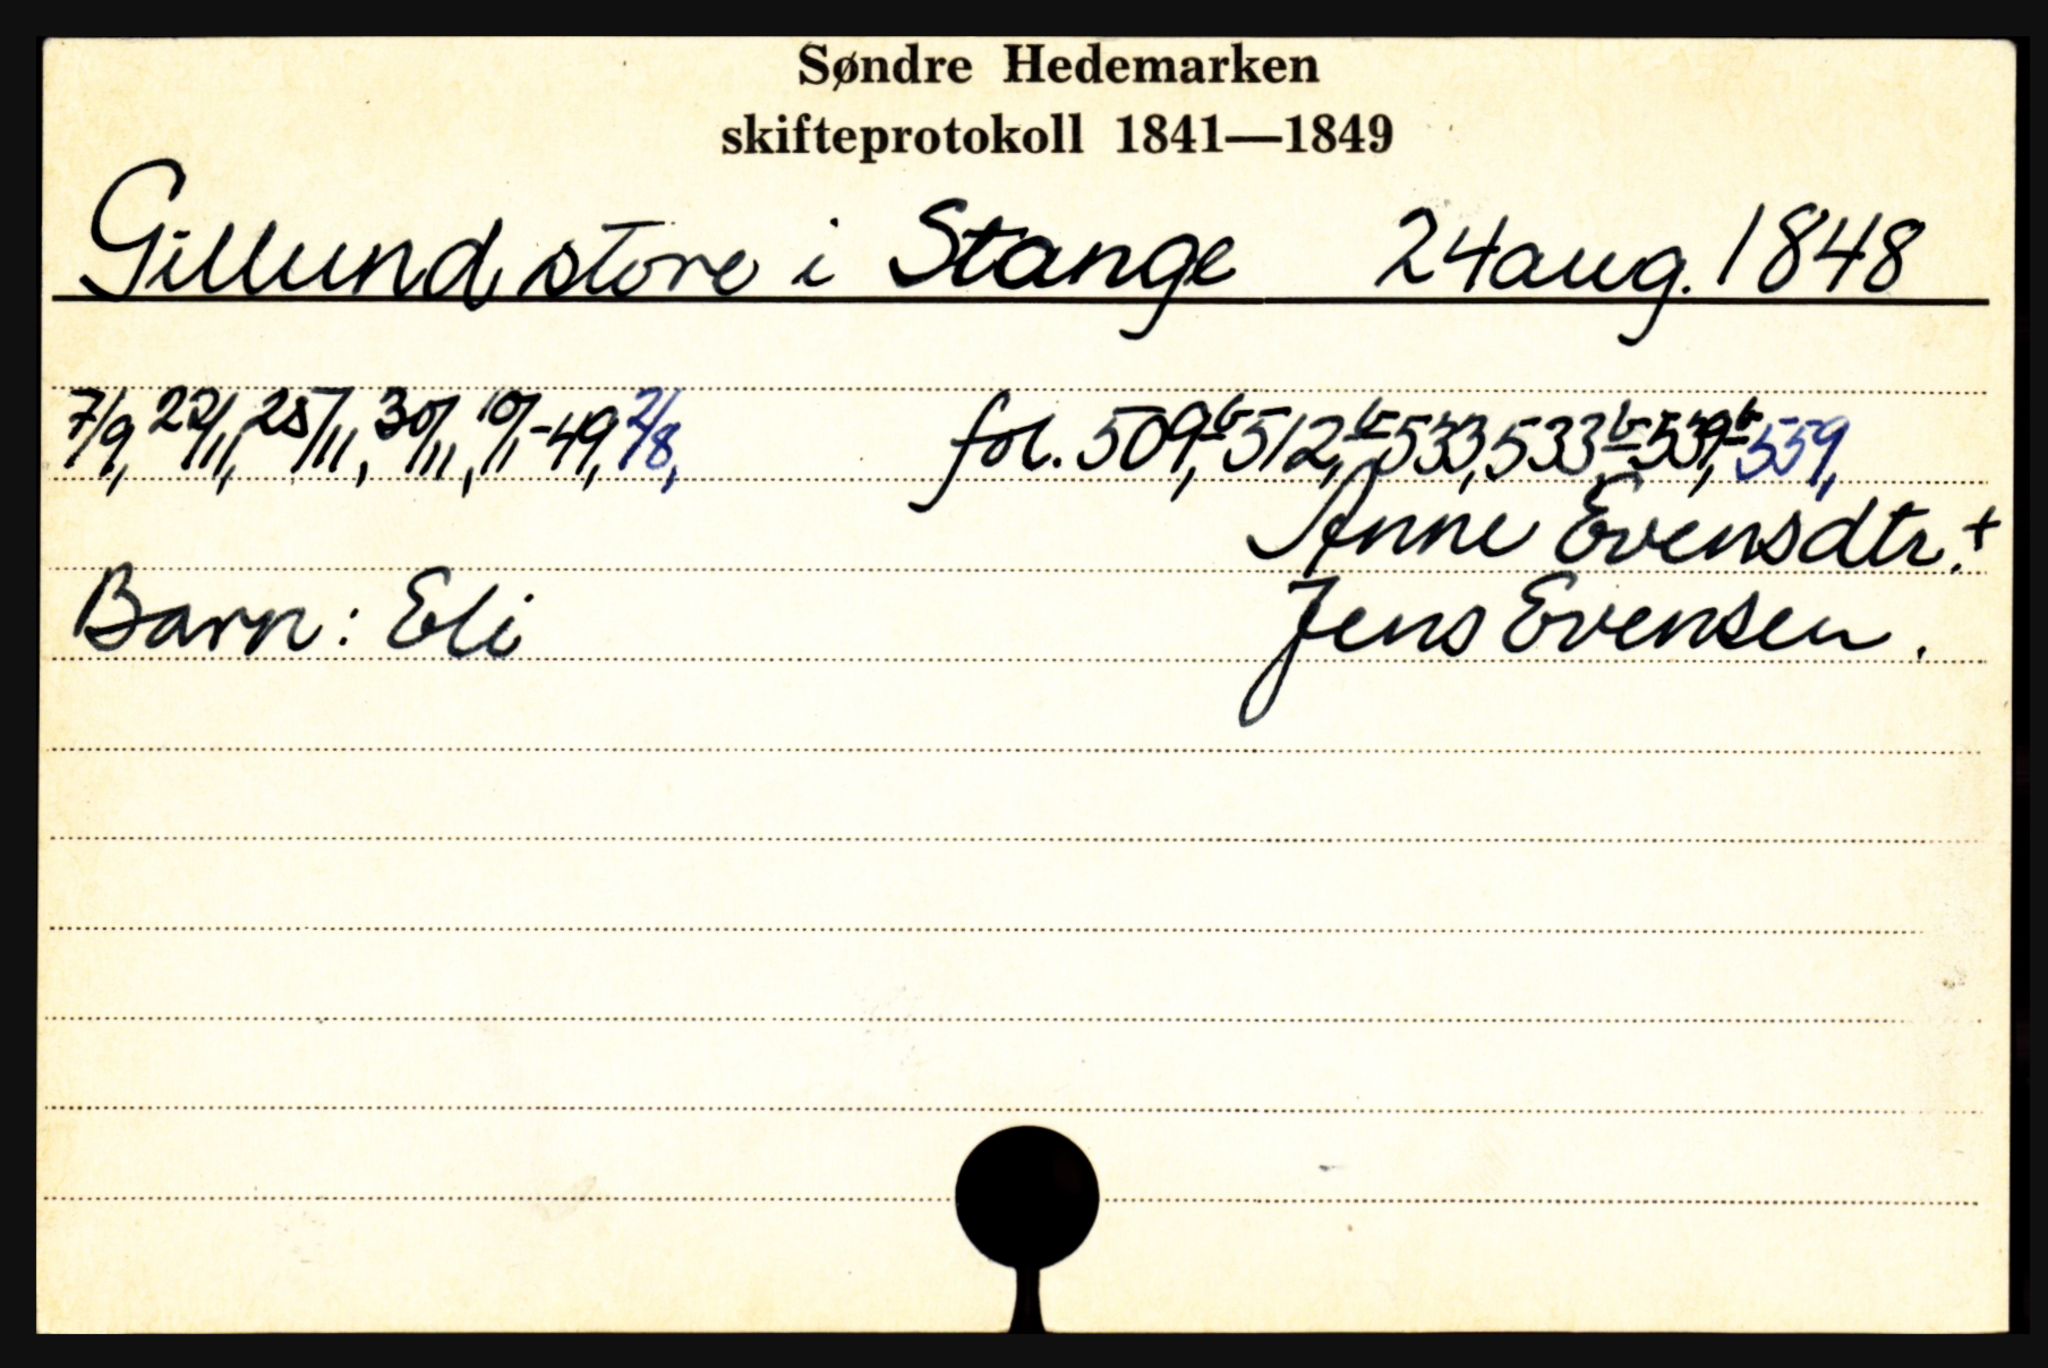 Søndre Hedemarken
skifteprotokoll 1841—1849
Gillund store i Stange 24 aug. 1848
7/9, 22/11, 25/11, 30/11, 10/1-49, 2/8, fol. 509b, 512b, 533, 533b, 539b, 559,
Anne Evensdtr. +
Barn: Eli Jens Evensen.